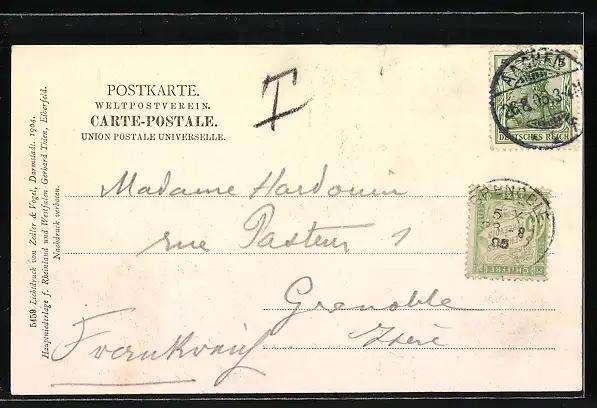 POSTKARTE.
WELTPOSTVEREIN.
CARTE-POSTALE.
UNION POSTALE UNIVERSELLE.
T
AACHEN
26.8.05.3-4N
DEUTSCHES REICH
Madame Hardouin
rue Pasteur 1
Grenoble
Isère
Frankreich
GRENOBLE
5
CHIFFRE
5459 Lichtdruck von Zedler & Vogel, Darmstadt. 1904.
Hauptniederlage f. Rheinland und Westfalen Gerhard Thien, Elberfeld.
Nachdruck verboten.